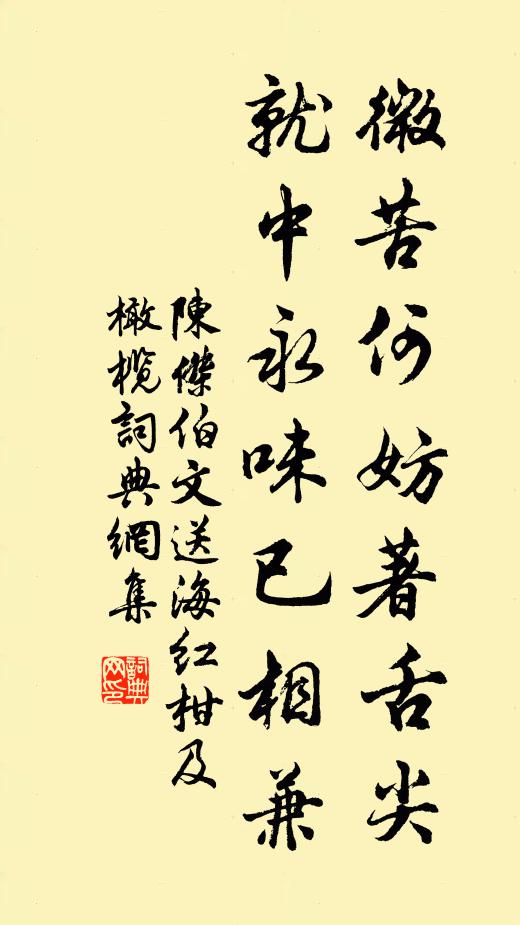 微苦何妨著舌尖
就中永味已相兼
陳傑伯文送海红柑及
橄榄詞典網集
詞典网印